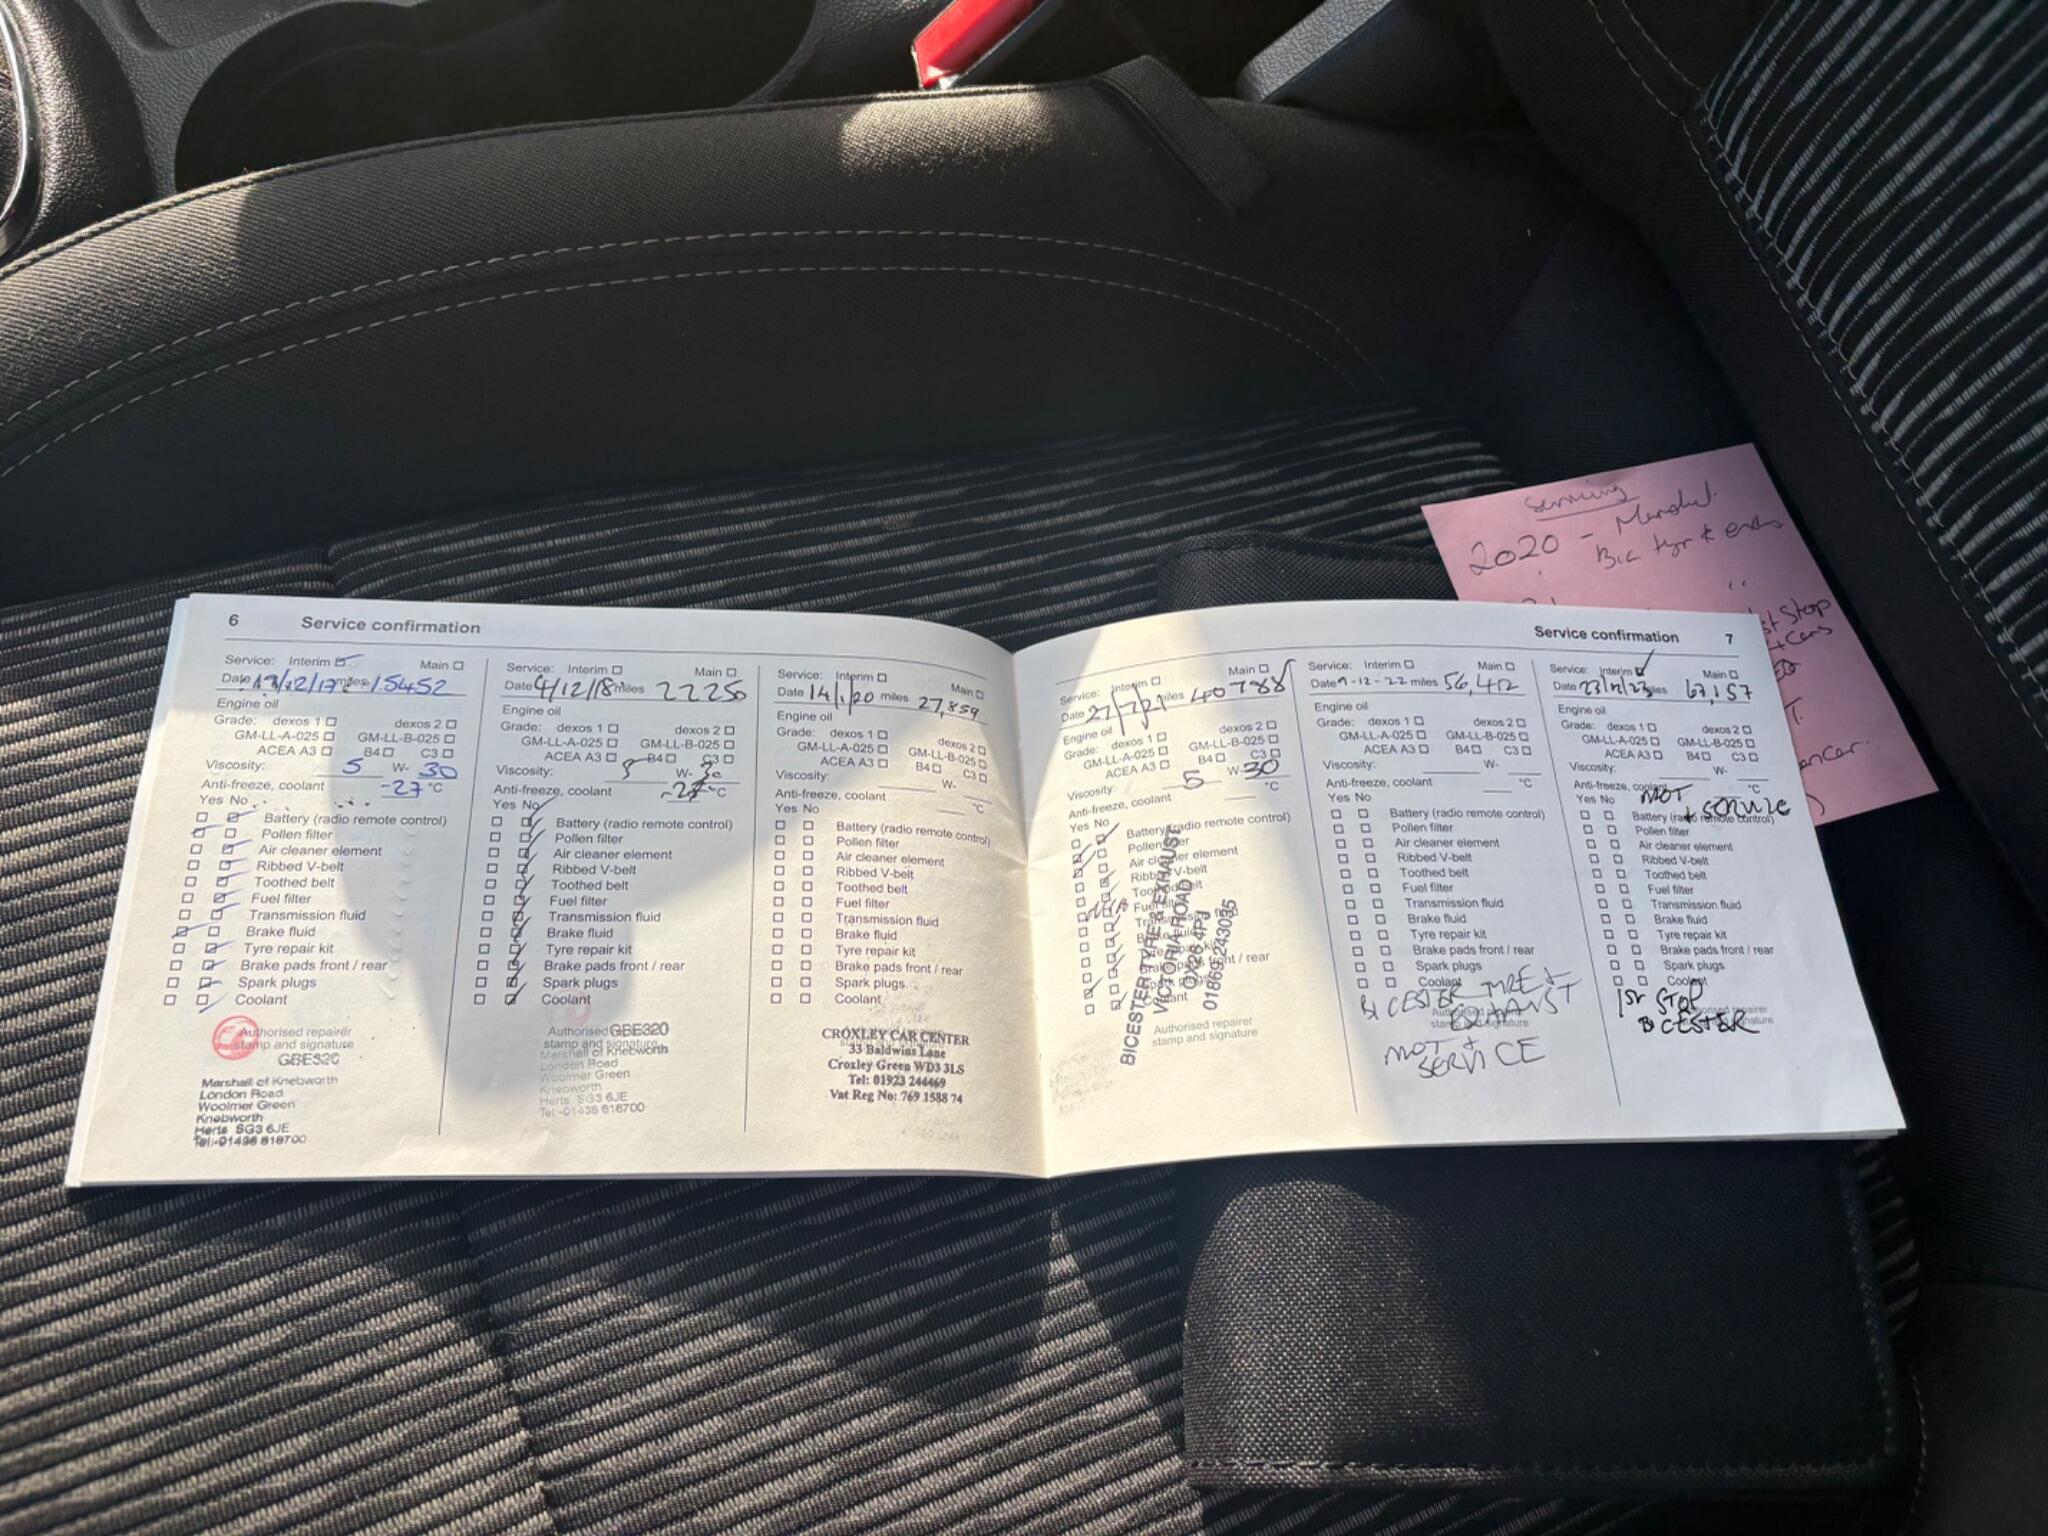 6 Service confirmation
Service: Interim ☑ Main ☐
Date 19/12/17 miles 15452
Engine oil
Grade: dexos 1 ☐ dexos 2 ☐
GM-LL-A-025 ☐ GM-LL-B-025 ☐
ACEA A3 ☐ B4 ☐ C3 ☐
Viscosity: 5 W- 30
Anti-freeze, coolant -27 °C
Yes No
Battery (radio remote control)
Pollen filter
Air cleaner element
Ribbed V-belt
Toothed belt
Fuel filter
Transmission fluid
Brake fluid
Tyre repair kit
Brake pads front / rear
Spark plugs
Coolant
Authorised repairer
stamp and signature
GBE320
Marshall of Knebworth
London Road
Woolmer Green
Knebworth
Herts SG3 6JE
Tel:-01438 816700
Service: Interim ☐ Main ☐
Date 4/12/18 miles 22250
Engine oil
Grade: dexos 1 ☐ dexos 2 ☐
GM-LL-A-025 ☐ GM-LL-B-025 ☐
ACEA A3 ☐ B4 ☐ C3 ☐
Viscosity: 5 W- 30
Anti-freeze, coolant -27 °C
Yes No
Battery (radio remote control)
Pollen filter
Air cleaner element
Ribbed V-belt
Toothed belt
Fuel filter
Transmission fluid
Brake fluid
Tyre repair kit
Brake pads front / rear
Spark plugs
Coolant
Authorised GBE320
stamp and signature
Marshall of Knebworth
London Road
Woolmer Green
Knebworth
Herts SG3 6JE
Tel:-01438 816700
Service: Interim ☐ Main ☐
Date 14/1/20 miles 27,859
Engine oil
Grade: dexos 1 ☐ dexos 2 ☐
GM-LL-A-025 ☐ GM-LL-B-025 ☐
ACEA A3 ☐ B4 ☐ C3 ☐
Viscosity: W-
Anti-freeze, coolant °C
Yes No
Battery (radio remote control)
Pollen filter
Air cleaner element
Ribbed V-belt
Toothed belt
Fuel filter
Transmission fluid
Brake fluid
Tyre repair kit
Brake pads front / rear
Spark plugs
Coolant
CROXLEY CAR CENTER
33 Baldwins Lane
Croxley Green WD3 3LS
Tel: 01923 244469
Vat Reg No: 769 1588 74
Service confirmation 7
Service: Interim ☐ Main ☐
Date 27/7/21 miles 40788
Engine oil
Grade: dexos 1 ☐ dexos 2 ☐
GM-LL-A-025 ☐ GM-LL-B-025 ☐
ACEA A3 ☐ B4 ☐ C3 ☐
Viscosity: 5 W- 30
Anti-freeze, coolant °C
Yes No
Battery (radio remote control)
Pollen filter
Air cleaner element
Ribbed V-belt
Toothed belt
Fuel filter
Transmission fluid
Brake fluid
Tyre repair kit
Brake pads front / rear
Spark plugs
Coolant
Authorised repairer
stamp and signature
BICESTER TYRE & EXHAUST
VICTORIA ROAD
OX26 4PJ
01869 243035
Service: Interim ☐ Main ☐
Date 9-12-22 miles 56,412
Engine oil
Grade: dexos 1 ☐ dexos 2 ☐
GM-LL-A-025 ☐ GM-LL-B-025 ☐
ACEA A3 ☐ B4 ☐ C3 ☐
Viscosity: W-
Anti-freeze, coolant °C
Yes No
Battery (radio remote control)
Pollen filter
Air cleaner element
Ribbed V-belt
Toothed belt
Fuel filter
Transmission fluid
Brake fluid
Tyre repair kit
Brake pads front / rear
Spark plugs
Coolant
BICESTER TYRE +
EXHAUST
stamp and signature
MOT +
SERVICE
Service: Interim ☑ Main ☐
Date 23/12/23 miles 67,157
Engine oil
Grade: dexos 1 ☐ dexos 2 ☐
GM-LL-A-025 ☐ GM-LL-B-025 ☐
ACEA A3 ☐ B4 ☐ C3 ☐
Viscosity: W-
Anti-freeze, coolant °C
Yes No MOT
+ SERVICE
Battery (radio remote control)
Pollen filter
Air cleaner element
Ribbed V-belt
Toothed belt
Fuel filter
Transmission fluid
Brake fluid
Tyre repair kit
Brake pads front / rear
Spark plugs
Coolant
1ST STOP
BICESTER
Servicing
2020 -
Bic tyr &
Stop